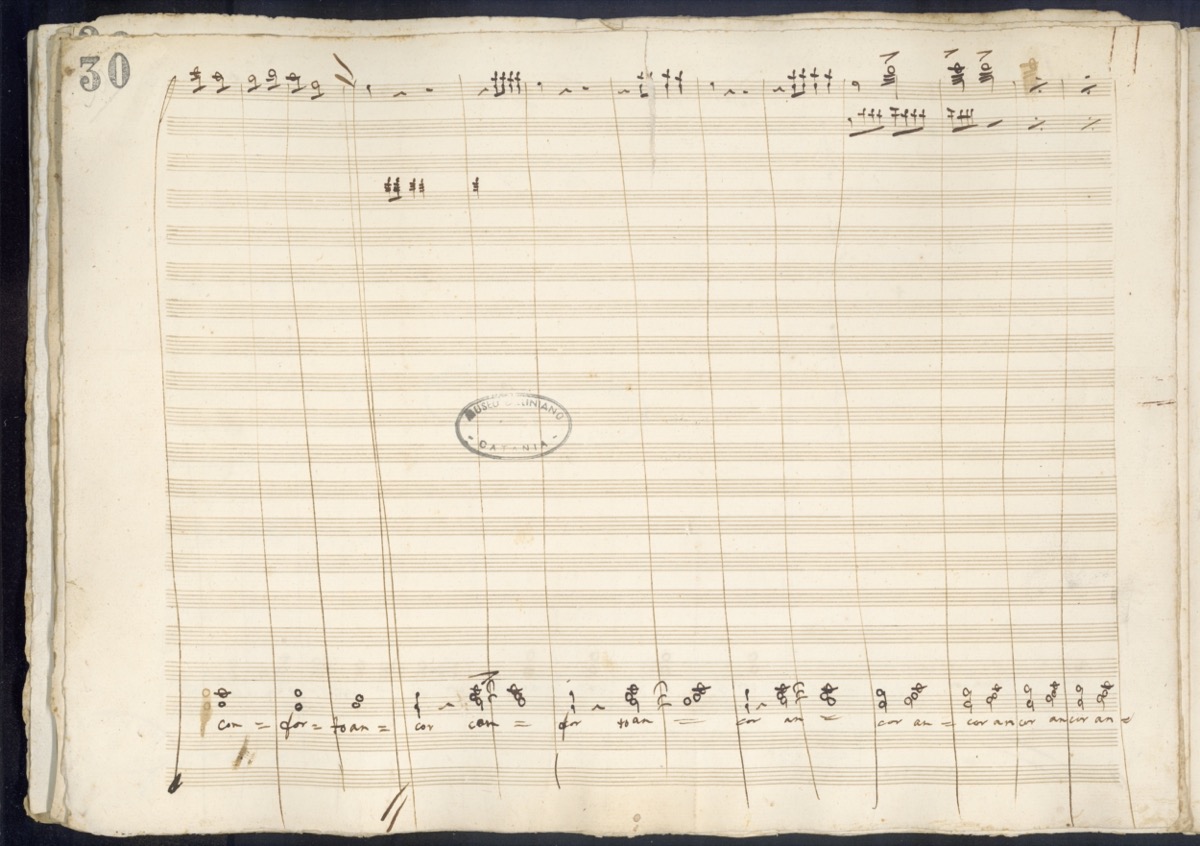 30
MUSEO BELLINIANO
- CATANIA -
con = for = to an = cor con = for to an = cor an = cor an = cor an cor an cor an =